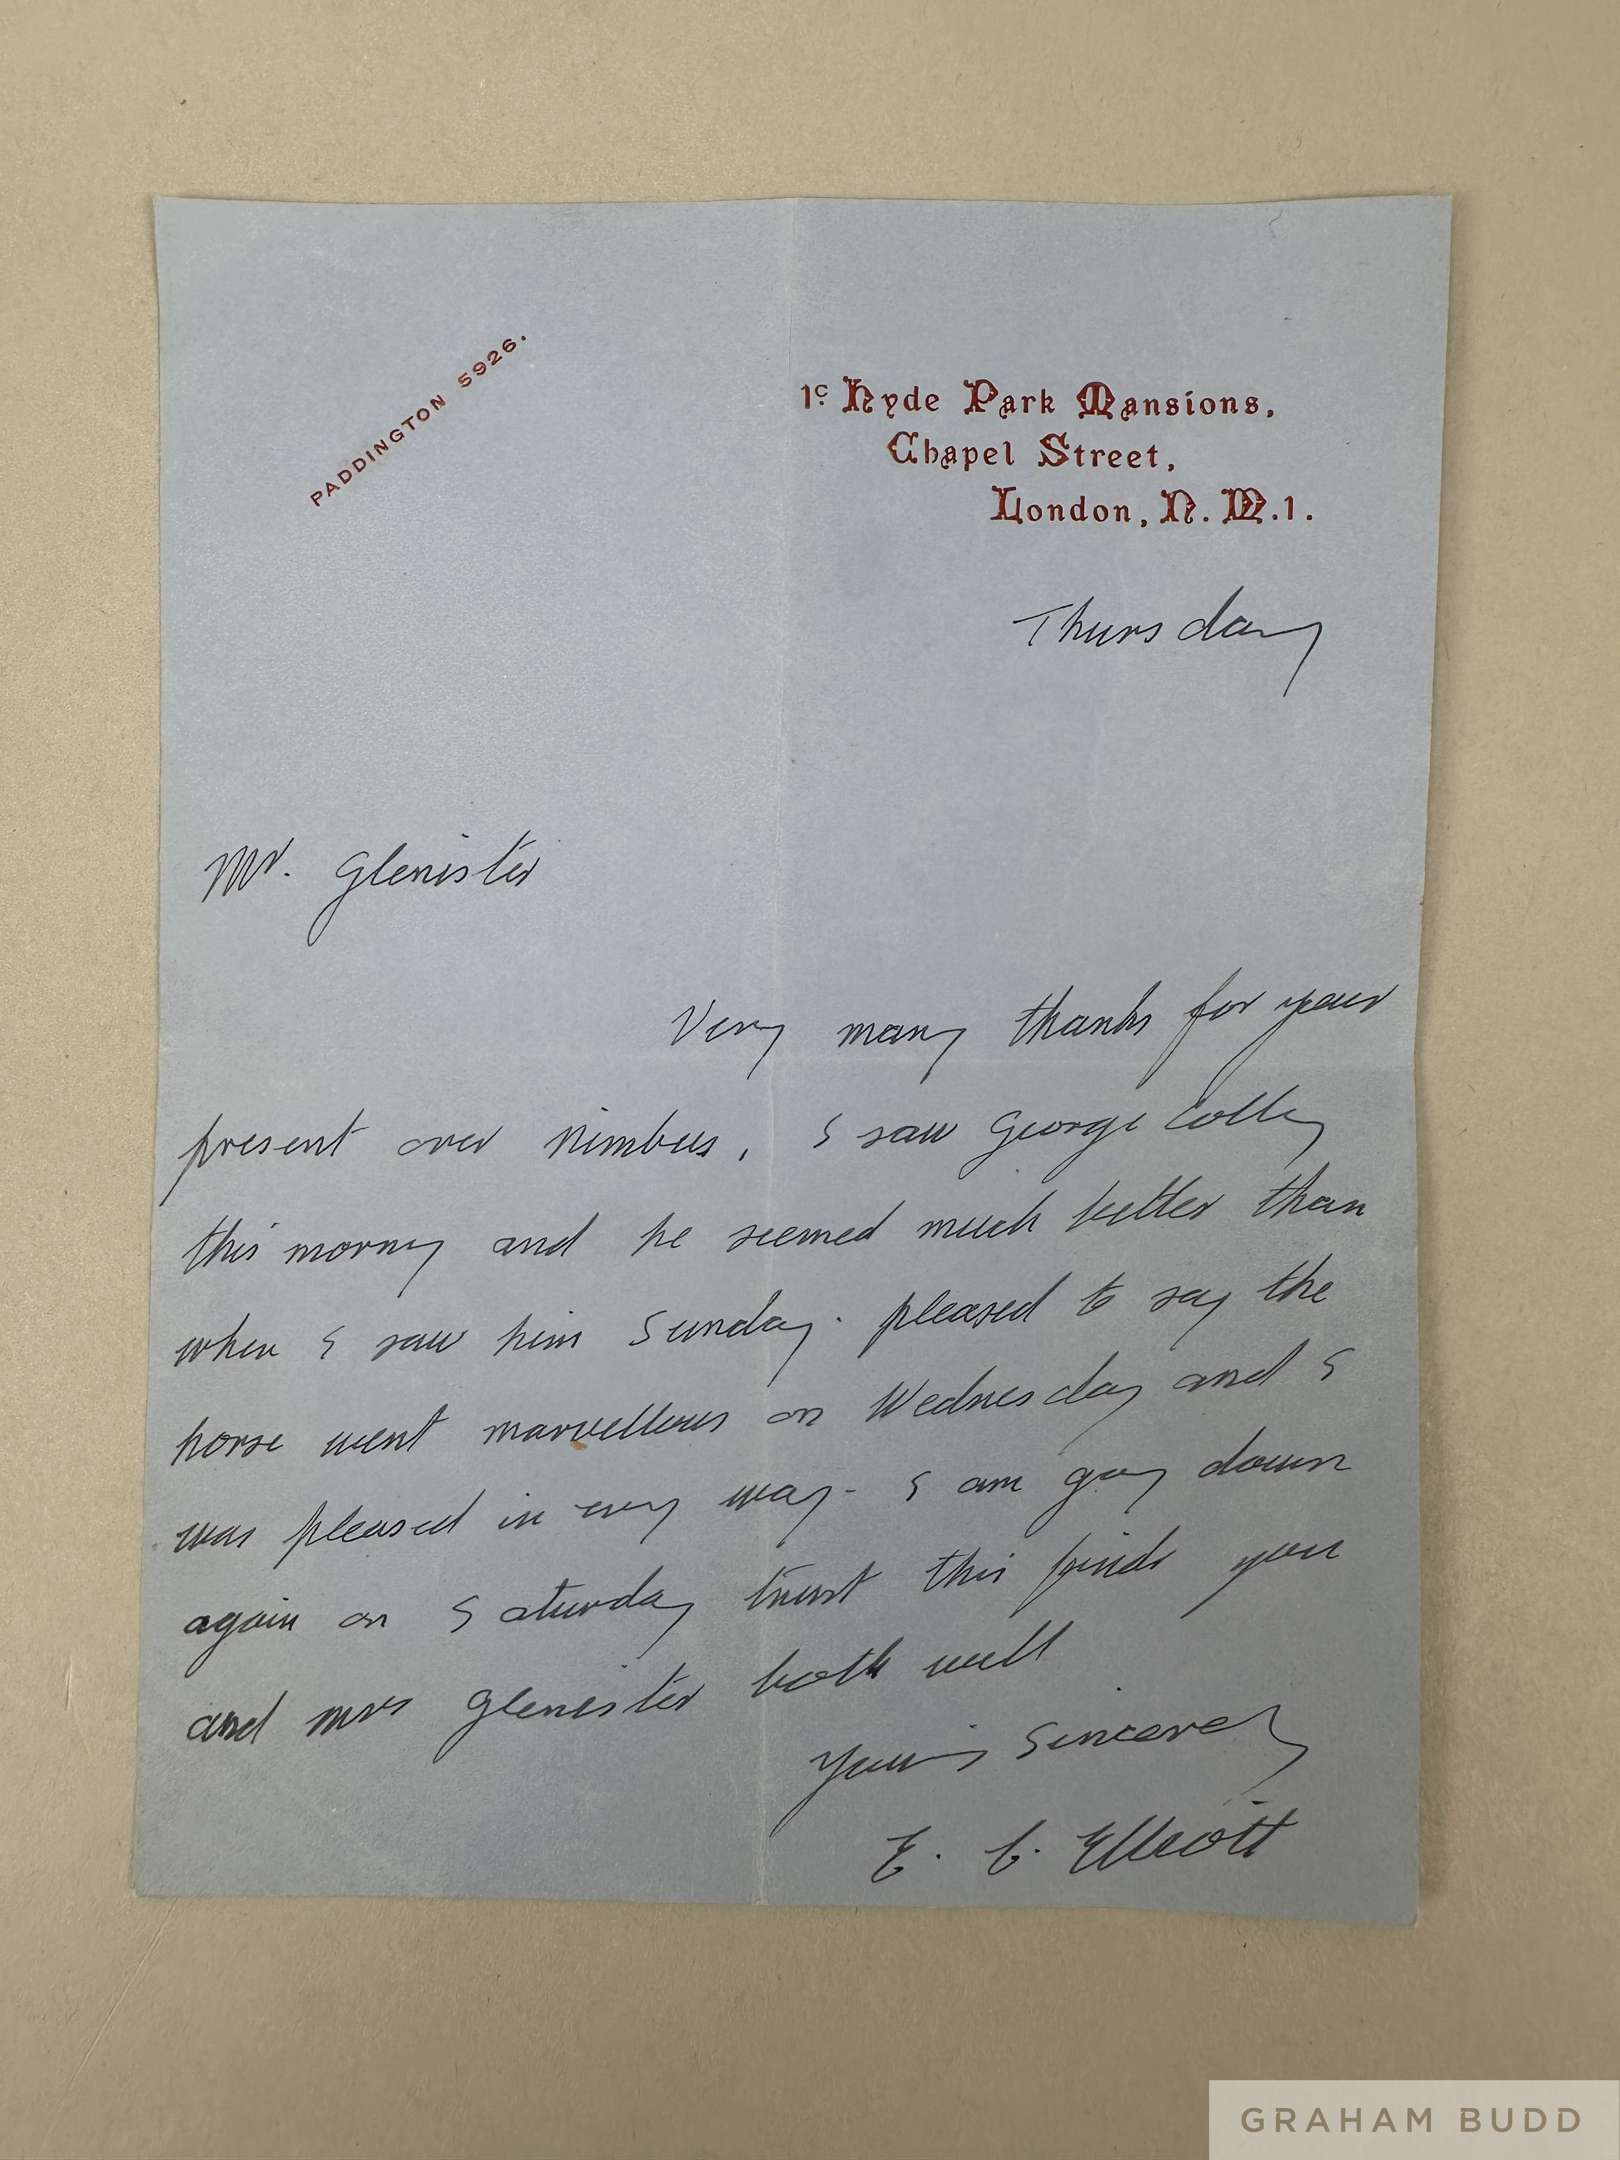 PADDINGTON 5926.
1c. Hyde Park Mansions,
Chapel Street,
London, N.W.1.
Thursday
Mr. Glenister
Very many thanks for your
present over Nimbus, I saw George Colley
this morng and he seemed much better than
when I saw him Sunday. pleased to say the
horse went marvellous on Wednesday and I
was pleased in evey way. I am gog down
again on Saturday trust this finds you
and Mrs Glenister both well
Yours Sincerey
E. C. Elliott
GRAHAM BUDD